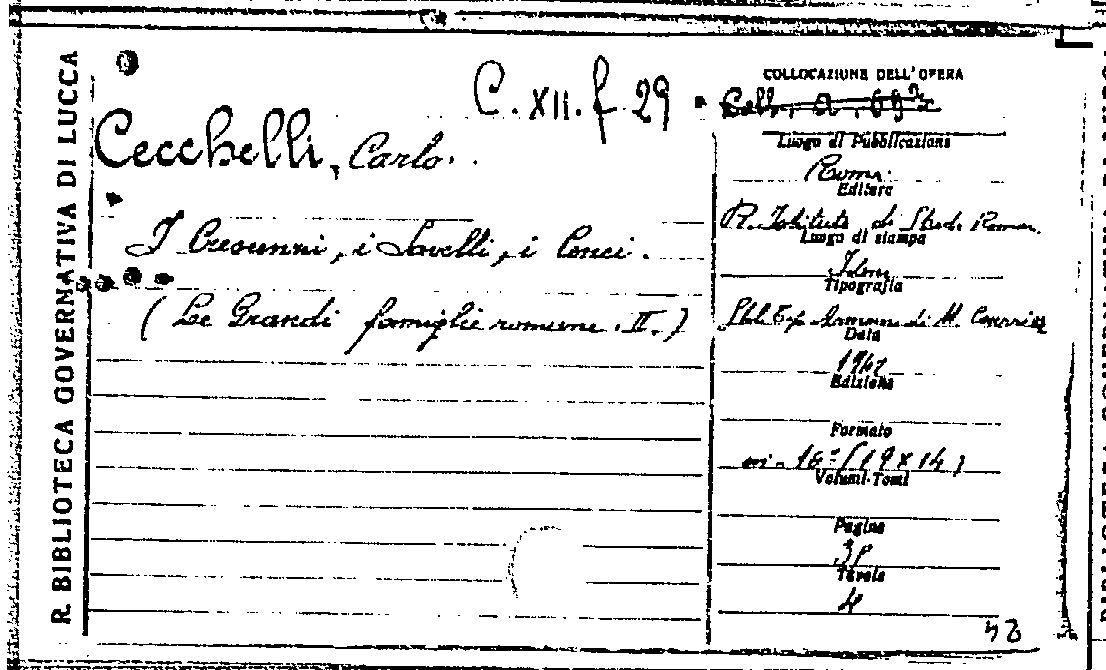 R. BIBLIOTECA GOVERNATIVA DI LUCCA
C. XII. f 29.
Cecchelli, Carlo.
I Crescenzi, i Savelli, i Cenci.
(Le Grandi famiglie romane. II.)
COLLOCAZIONE DELL'OPERA
Coll. a. 69
Luogo di Pubblicazione
Roma.
Editore
R. Istituto di Studi Romani.
Luogo di stampa
Idem
Tipografia
Stab. Tip. di M.
Data
1942
Edizione
Formato
in-16° (19x14)
Volumi-Tomi
Pagine
38
Tavole
4
42